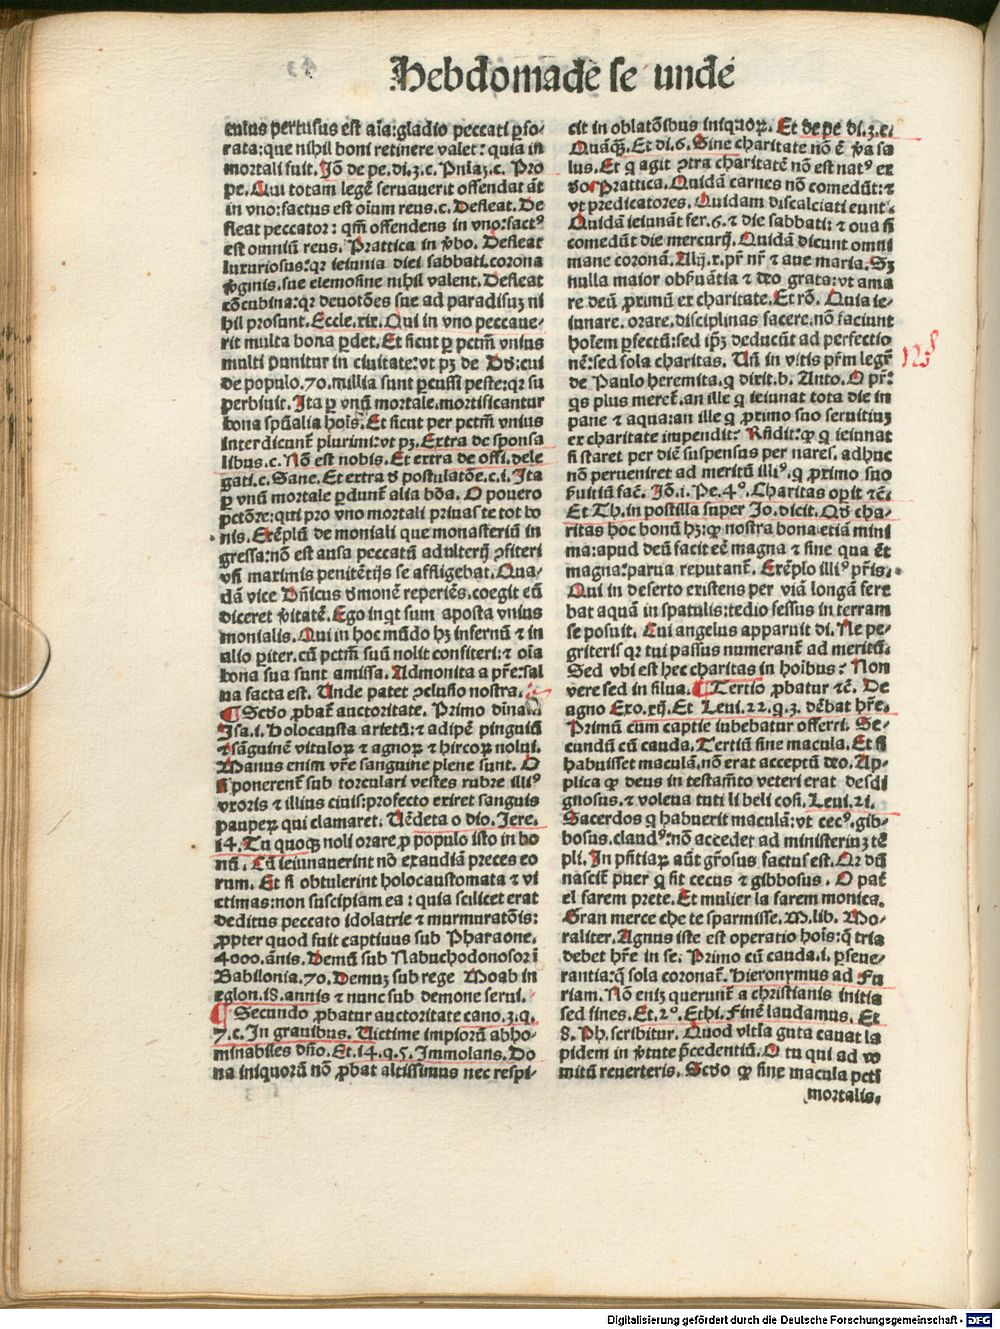 Hebdomade se unde
cuius pertusus est aīa:gladio peccati ꝑfo-
rata:que nihil boni retinere valet: quia in
mortali fuit. Jō de pe. di.3.c. Pnīa3.c. Pro
pe. Qui totam legē seruauerit offendat āt
in vno:factus est oīum reus.c. Defleat. De
fleat peccator: qm̄ offendens in vno:factꝰ
est omniū reus. Prattica in ꝟbo. Defleat
luxuriosus:qꝛ ieiunia diei sabbati.corona
ꝟginis.sue elemosine nihil valent. Defleat
cōcubina:qꝛ deuotōes sue ad paradisuꝫ ni
hil prosunt. Eccle.xix. Qui in vno peccaue-
rit multa bona ꝑdet. Et sicut ꝑ pctm̄ vnius
multi punitur in ciuitate:vt pꝫ de Dd:cui
de populo.70.millia sunt ꝑcussi peste:qꝛ su
perbiuit. Ita ꝑ vnū mortale.mortificantur
bona spūalia hoīs. Et sicut per pctm̄ vnius
interdicunt̄ plurimi:vt pꝫ. Extra de sponsa
libus.c. Nō est nobis. Et extra de offi.dele
gati.c. Sane. Et extra ð postulatōe.c.i. Ita
ꝑ vnū mortale ꝑdunt̄ alia bōa. O pouero
pctōre:qui pro vno mortali priuaste tot bo
nis. Exēplū de moniali que monasteriū in
gressa:nō est ausa peccatū adulterij ꝯfiteri
vn̄ maximis penitētijs se affligebat. Qua-
dā vice Dn̄icus ðmonē reperiēs.coegit eū
diceret ꝟitatē. Ego inqt sum aposta vnius
monialis. Qui in hoc mūdo hꝫ infernū ⁊ in
alio ꝑiter.cū pctm̄ suū nolit confiteri:⁊ oīa
bona sua sunt amissa. Admonita a pr̄e:sal
ua facta est. Unde patet ꝯclusio nostra.
¶ Scðo ꝓbat̄ auctoritate. Primo dīna.
Isa.i. Holocausta arietū:⁊ adipē pinguiū
⁊ sāguinē vituloꝝ ⁊ agnoꝝ ⁊ hircoꝝ nolui.
Manus enim vr̄e sanguine plene sunt. O
si ponerent̄ sub torculari vestes rubre illiꝰ
vxoris ⁊ illius ciuis:profecto exiret sanguis
pauperꝝ qui clamaret. Uēdeta o dio. Jere.
14. Tu quoqꝫ noli orare.ꝓ populo isto in bo
nū. Cū ieiunauerint nō exaudiā preces eo
rum. Et si obtulerint holocaustomata ⁊ vi
ctimas:non suscipiam ea: quia scilicet erat
deditus peccato idolatrie ⁊ murmuratōis:
ꝓpter quod fuit captiuus sub Pharaone.
4000.ānis. Demū sub Nabuchodonosor ī
Babilonia.70. Demuꝫ sub rege Moab in
eglon.18.annis ⁊ nunc sub demone serui.
¶ Secundo ꝓbatur auctoritate cano.3.q.
7.c. In grauibus. Uictime impiorū abho-
minabiles dn̄o. Et.14.q.5. Immolans. Do
na iniquorū nō ꝓbat altissimus nec respi-
cit in oblatōibus iniquoꝝ. Et de pe di.3.c.
Quāqꝫ. Et di.6. Sine charitate nō ē ꝟa sa
lus. Et q agit ꝯtra charitatē nō est natꝰ ex
ðo Prattica. Quidā carnes nō comedūt:⁊
vt predicatores. Quidam discalciati eunt.
Quidā ieiunāt fer.6.⁊ die sabbati: ⁊ oua si
comedūt die mercurij. Quidā dicunt omni
mane coronā. Alij.x.pr̄ nr̄ ⁊ aue maria. Sꝫ
nulla maior obẜuātia ⁊ deo grata:vt ama
re deū ꝓrimū ex charitate. Et rō. Quia ie-
iunare. orare.disciplinas facere.nō faciunt
hoīem ꝑfectū:sed ipꝫ deducūt ad perfectio
nē:sed sola charitas. Un̄ in vitis pr̄m legr̄
de Paulo heremita.q dixit.b. Anto. O pr̄:
qs plus meret̄.an ille q ieiunat tota die in
pane ⁊ aqua:an ille q ꝓximo suo seruitiuꝫ
ex charitate impendit? Rn̄dit:ꝙ q ieiunat
si staret per diē suspensus per nares. adhuc
nō perueniret ad meritū illiꝰ.q proximo suo
ẜuitiū fac̄. Jō.i. Pe.4°. Charitas oꝑit ⁊c̄.
Et Th. in postilla super Jo. dicit. Qð cha-
ritas hoc bonū hꝫ:ꝙ nostra bona etiā mini
ma:apud deū facit eē magna ⁊ sine qua ēt
magna:parua reputant̄. Exēplo illiꝰ pr̄is.
Qui in deserto existens per viā longā fere
bat aquā in spatulis:tedio fessus in terram
se posuit. Cui angelus apparuit di. Ne pe-
griteris qꝛ tui passus numerant̄ ad meritū.
Sed vbi est hec charitas in hoībus? Non
vere sed in silua. ¶ Tertio ꝓbatur ⁊c̄. De
agno Exo.xij. Et Leui.22.q.3. dēbat hr̄e.
Primū cum captie iubebatur offerri. Se-
cundū cū cauda. Tertiū sine macula. Et si
habuisset maculā.nō erat acceptū deo. Ap-
plica ꝙ deus in testam̄to veteri erat desdi
gnosus.⁊ voleua tuti li beli cosi. Leui.21.
Sacerdos q habuerit maculā:vt cecꝰ.gib-
bosus.claudꝰ:nō accedet ad ministeriuꝫ tē
pli. In pn̄tiaꝝ aūt gr̄osus factus est. Qꝛ dū
nascit̄ puer q sit cecus ⁊ gibbosus. O pat̄
el farem prete. Et mulier la farem monica.
Gran merce che te sparmisse. M.lib. Mo-
raliter. Agnus iste est operatio hoīs:q̄ tria
debet hr̄e in se. Primo cū cauda.i. ꝑseue-
rantia:q̄ sola coronat̄. Hieronymus ad Fu
riam. Nō eniꝫ querunt̄ a christianis initia
sed fines. Et.2°. Ethi. Finē laudamus. Et
8. Ph. scribitur. Quod vltīa guta cauat la
pidem in ꝟtute p̄cedentiū. O tu qui ad vo
mitū reuerteris. Scðo ꝙ sine macula pcti
mortalis.
Digitalisierung gefördert durch die Deutsche Forschungsgemeinschaft - DFG